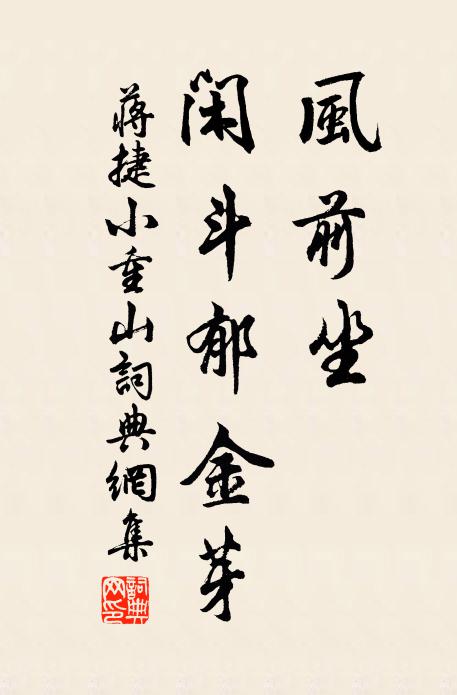 風前坐
閑斗郁金芽
蔣捷小重山詞典網集
詞典網印